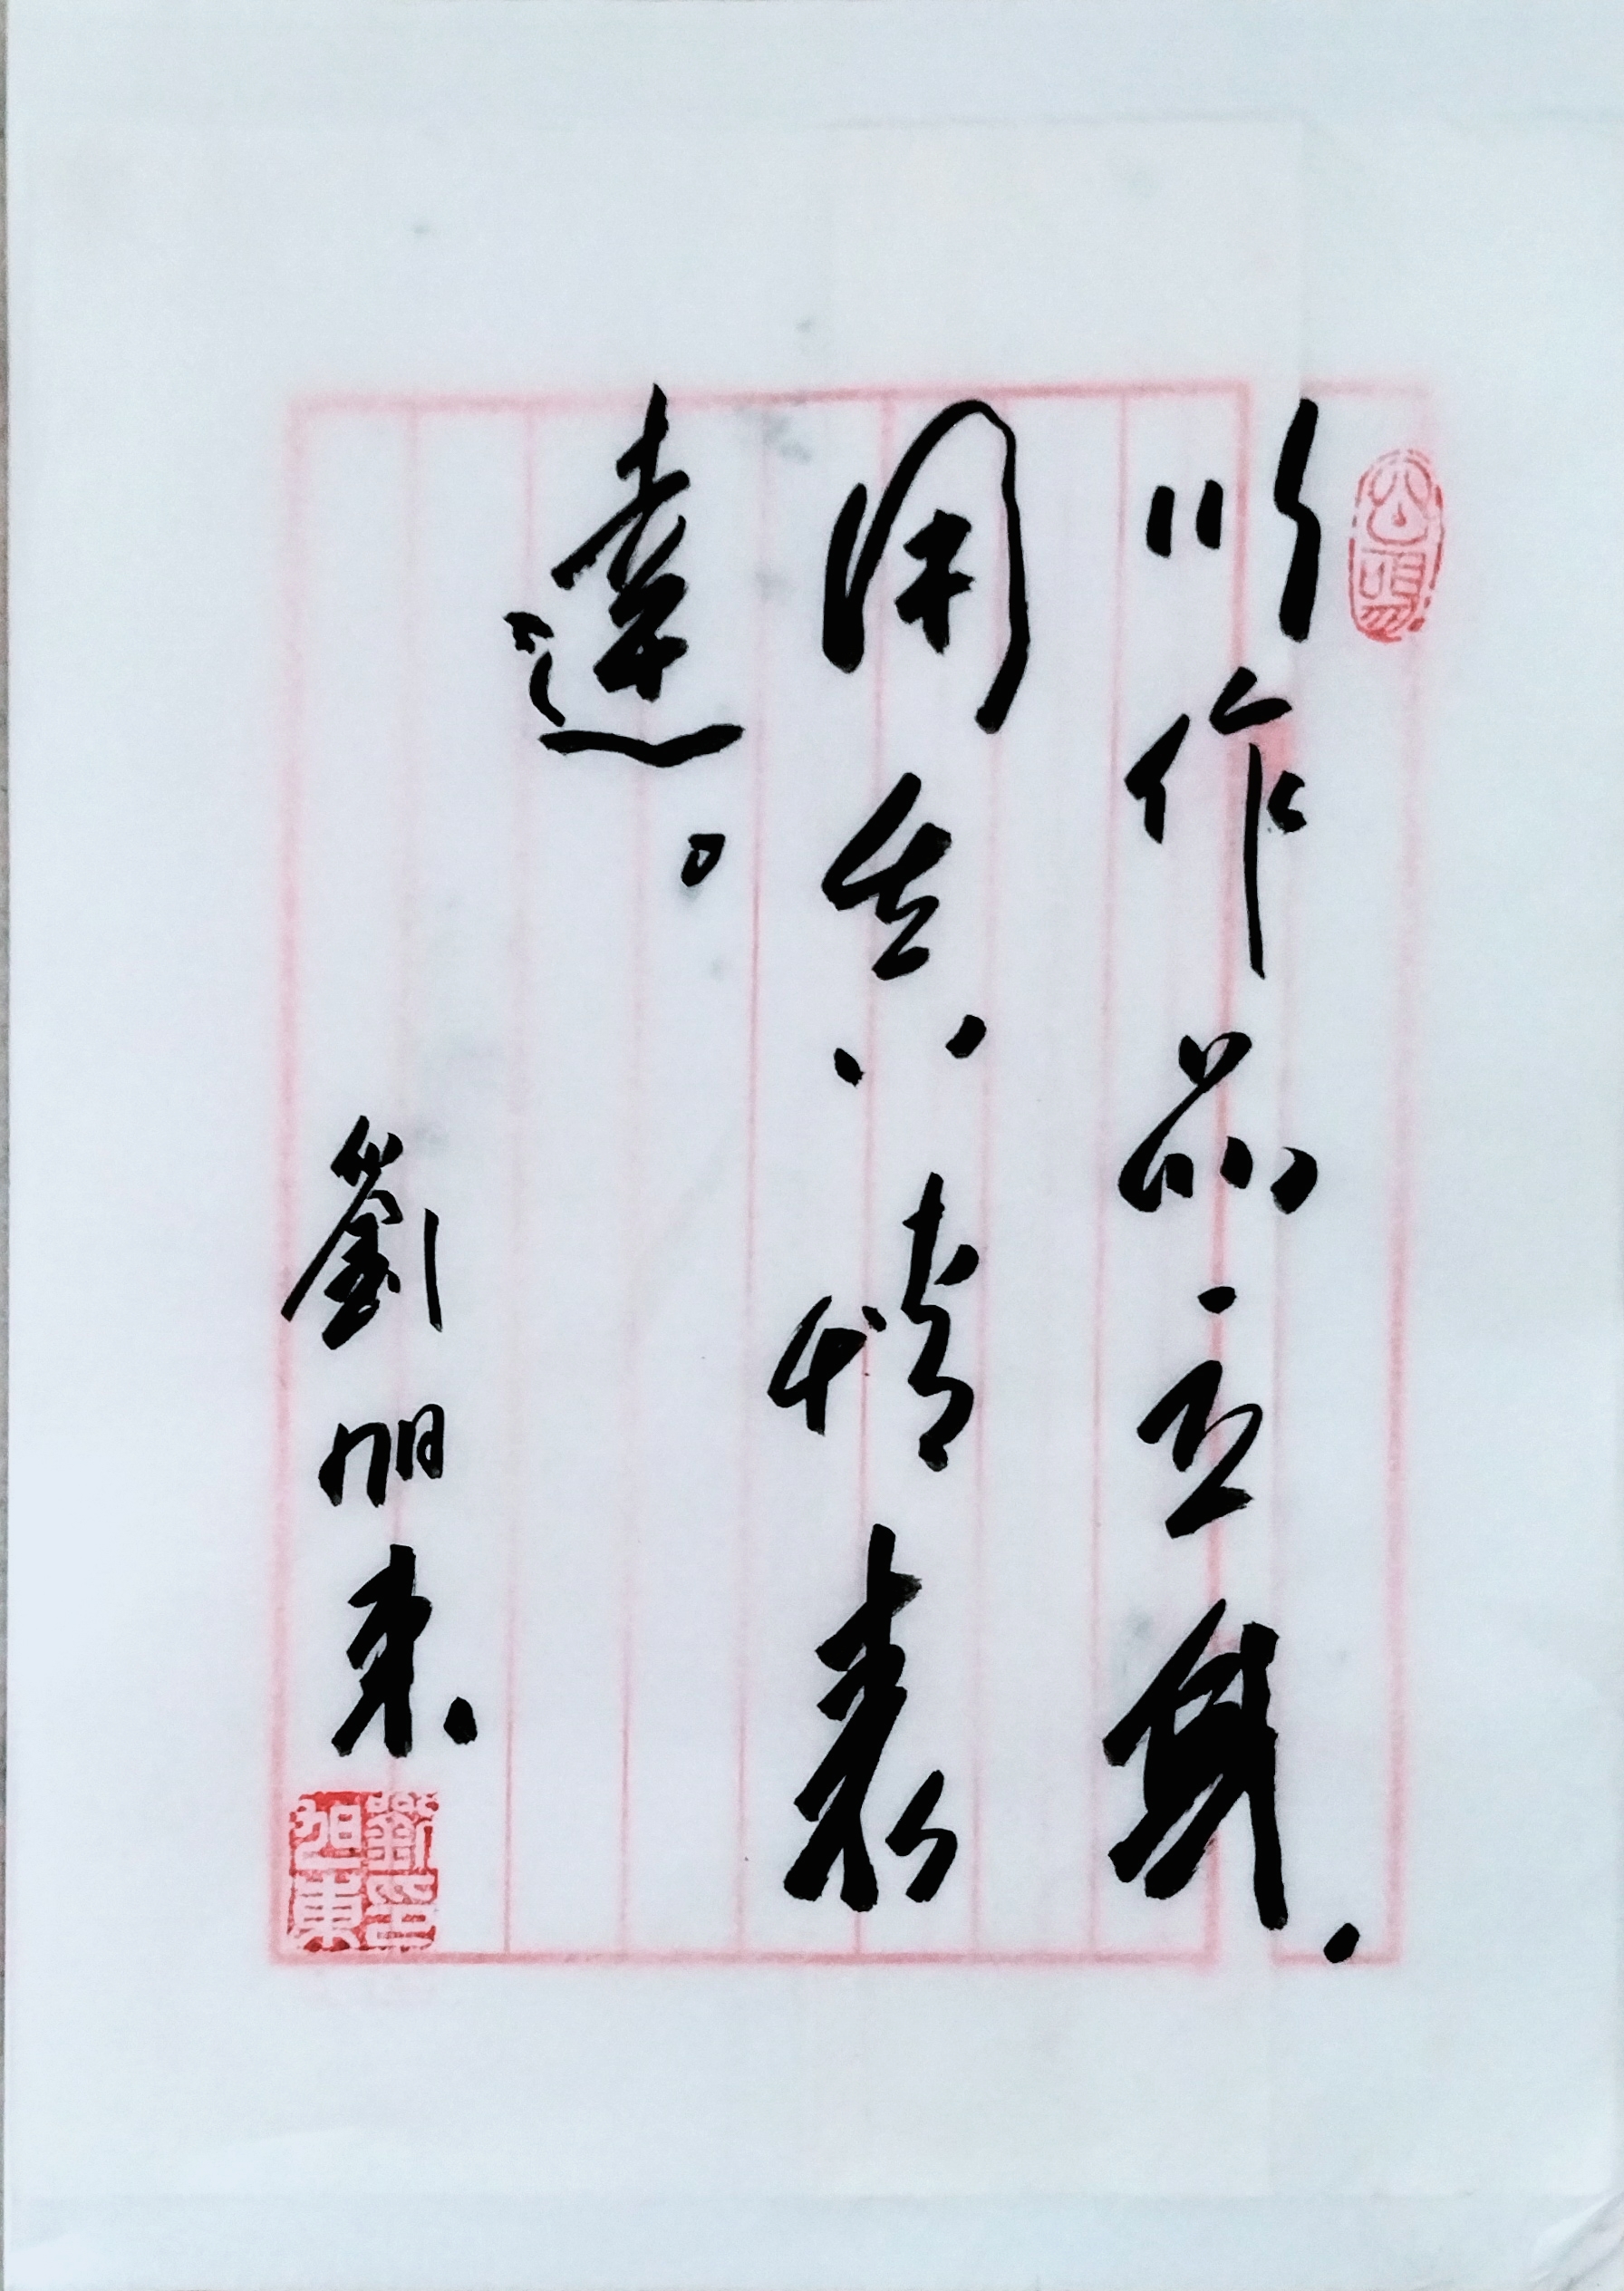 以作品立身.
用真情表
達。
劉旭東
劉印旭東